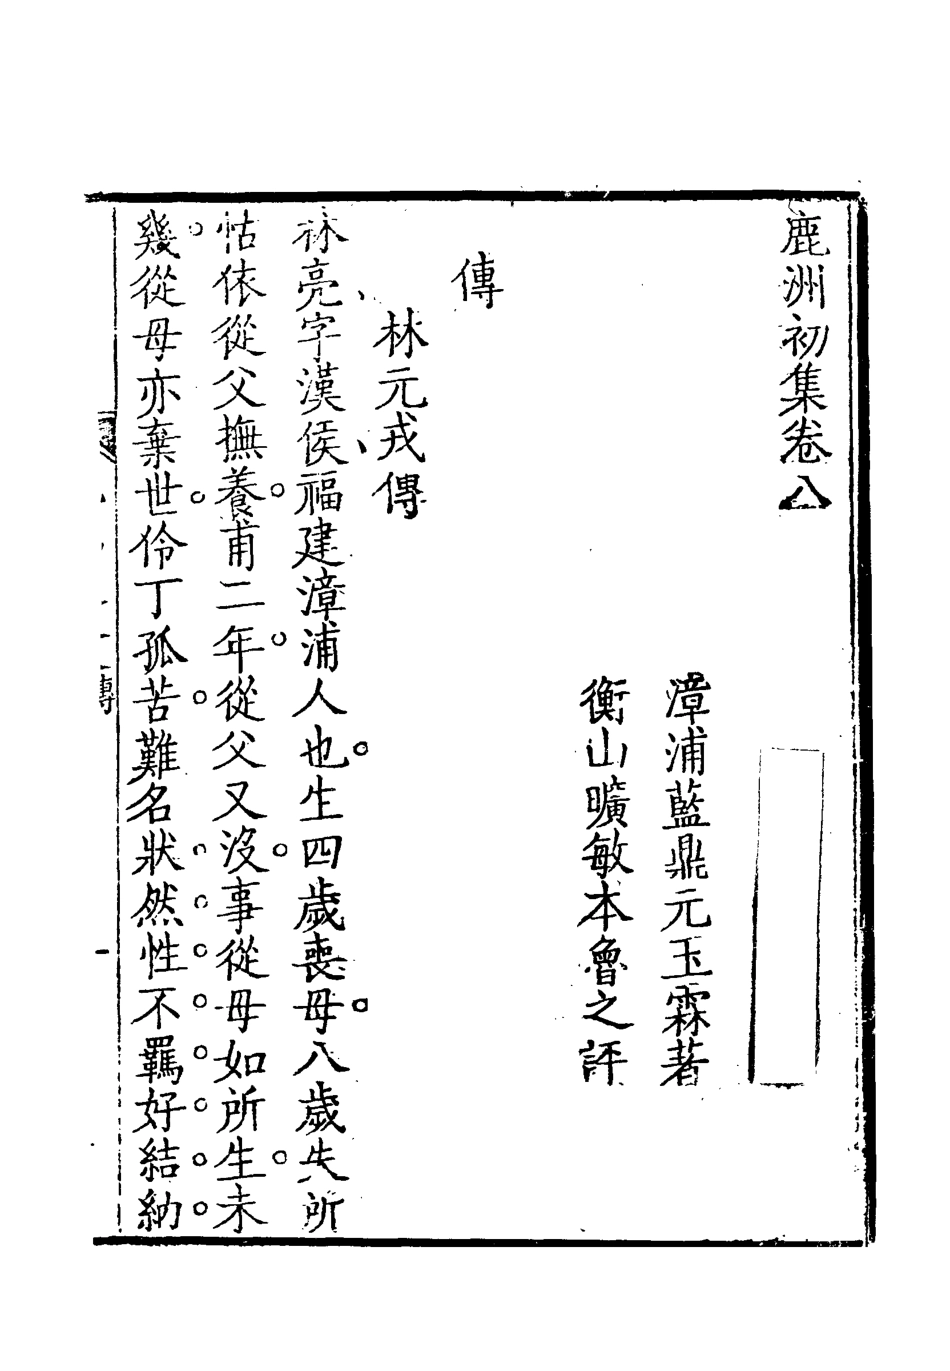 鹿洲初集卷八
漳浦藍鼎元玉霖著
衡山曠敏本魯之評
傳
林元戎傳
林亮字漢侯福建漳浦人也。生四歲喪母。八歲失所
怙依從父撫養。甫二年。從父又沒。事從母如所生。未
幾。從母亦棄世。伶丁孤苦。難名狀。然性不羈好結納
傳